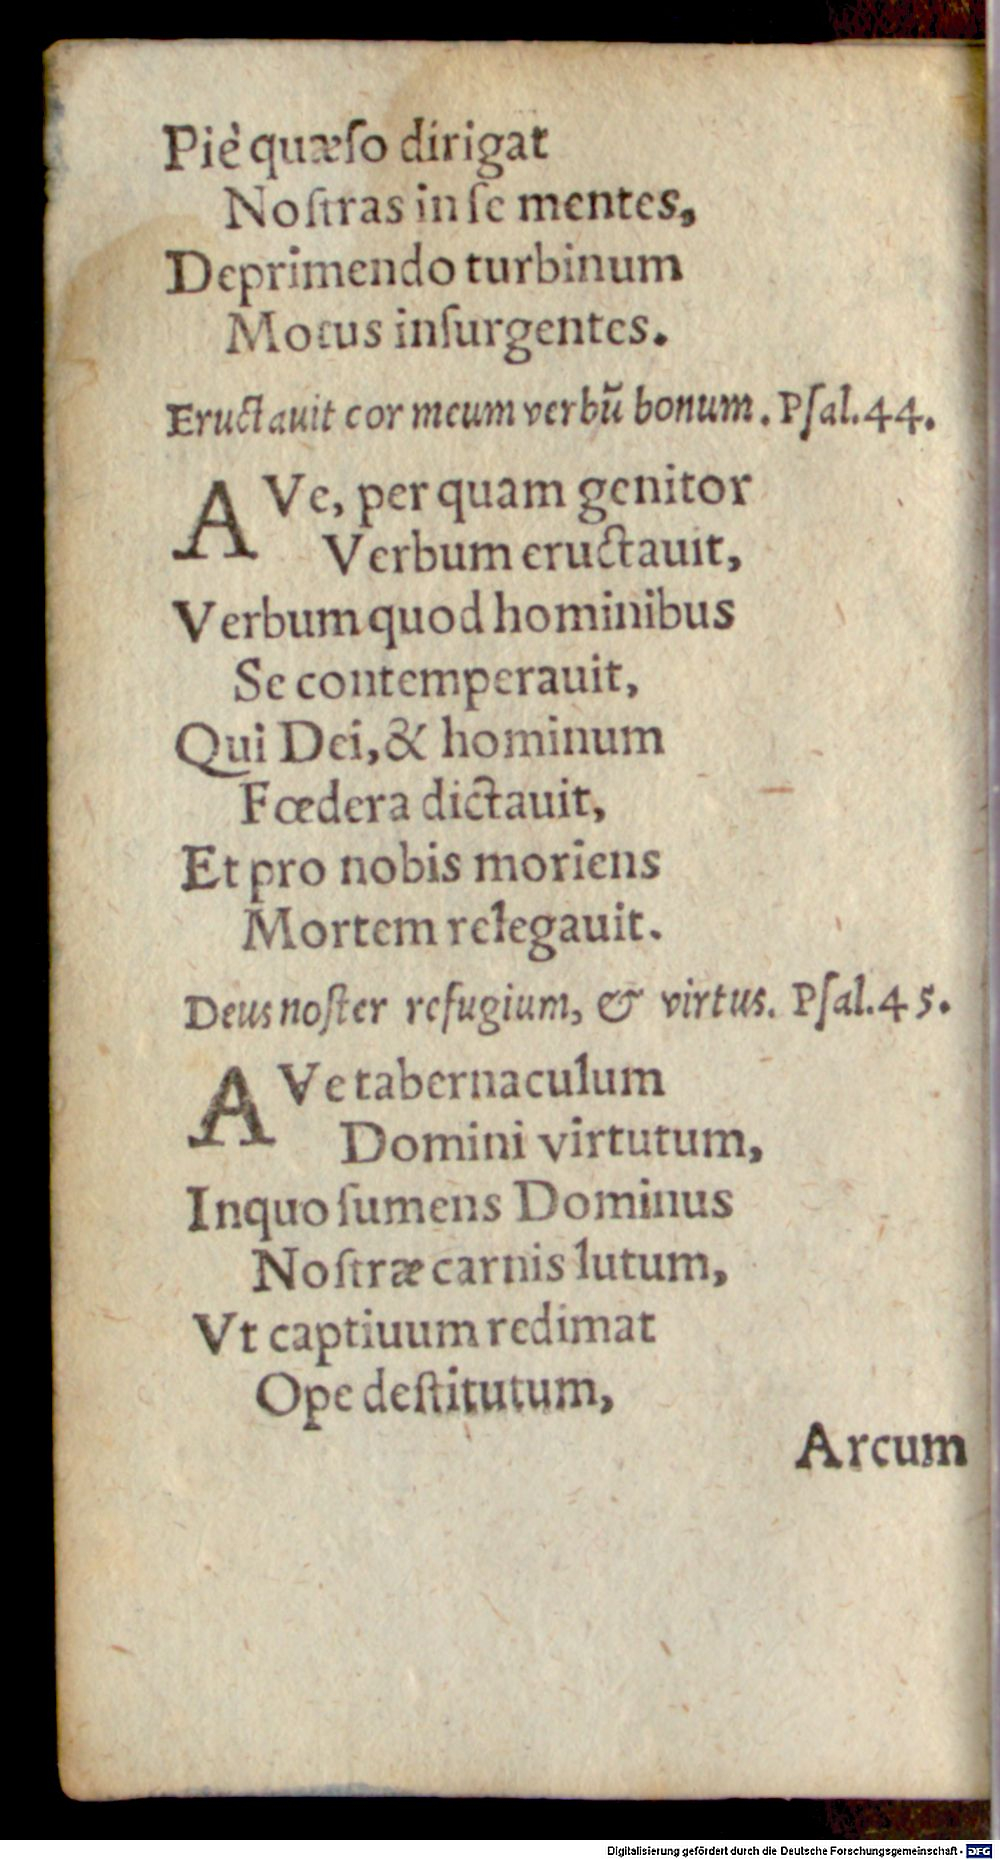 Piè quæſo dirigat
Noſtras in ſe mentes,
Deprimendo turbinum
Motus inſurgentes.
Eructauit cor meum verbũ bonum. Pſal. 44.
AVe, per quam genitor
Verbum eructauit,
Verbum quod hominibus
Se contemperauit,
Qui Dei, & hominum
Fœdera dictauit,
Et pro nobis moriens
Mortem relegauit.
Deus noſter refugium, & virtus. Pſal. 45.
AVe tabernaculum
Domini virtutum,
In quo ſumens Dominus
Noſtræ carnis lutum,
Vt captiuum redimat
Ope deſtitutum,
Arcum
Digitalisierung gefördert durch die Deutsche Forschungsgemeinschaft - DFG